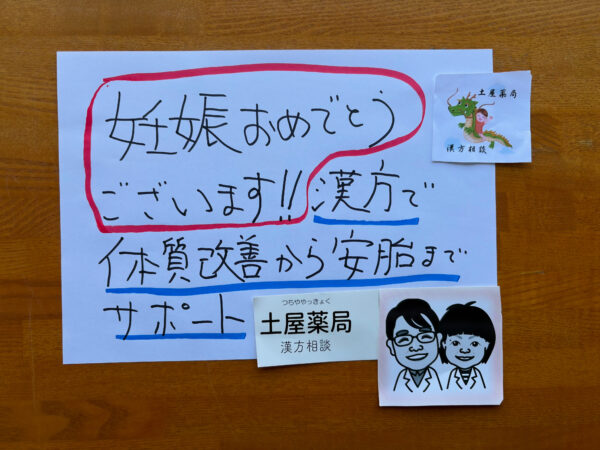 妊娠おめでとう
ございます!!漢方で
体質改善から安胎まで
サポート
土屋薬局
漢方相談
つちややっきょく
土屋薬局
漢方相談